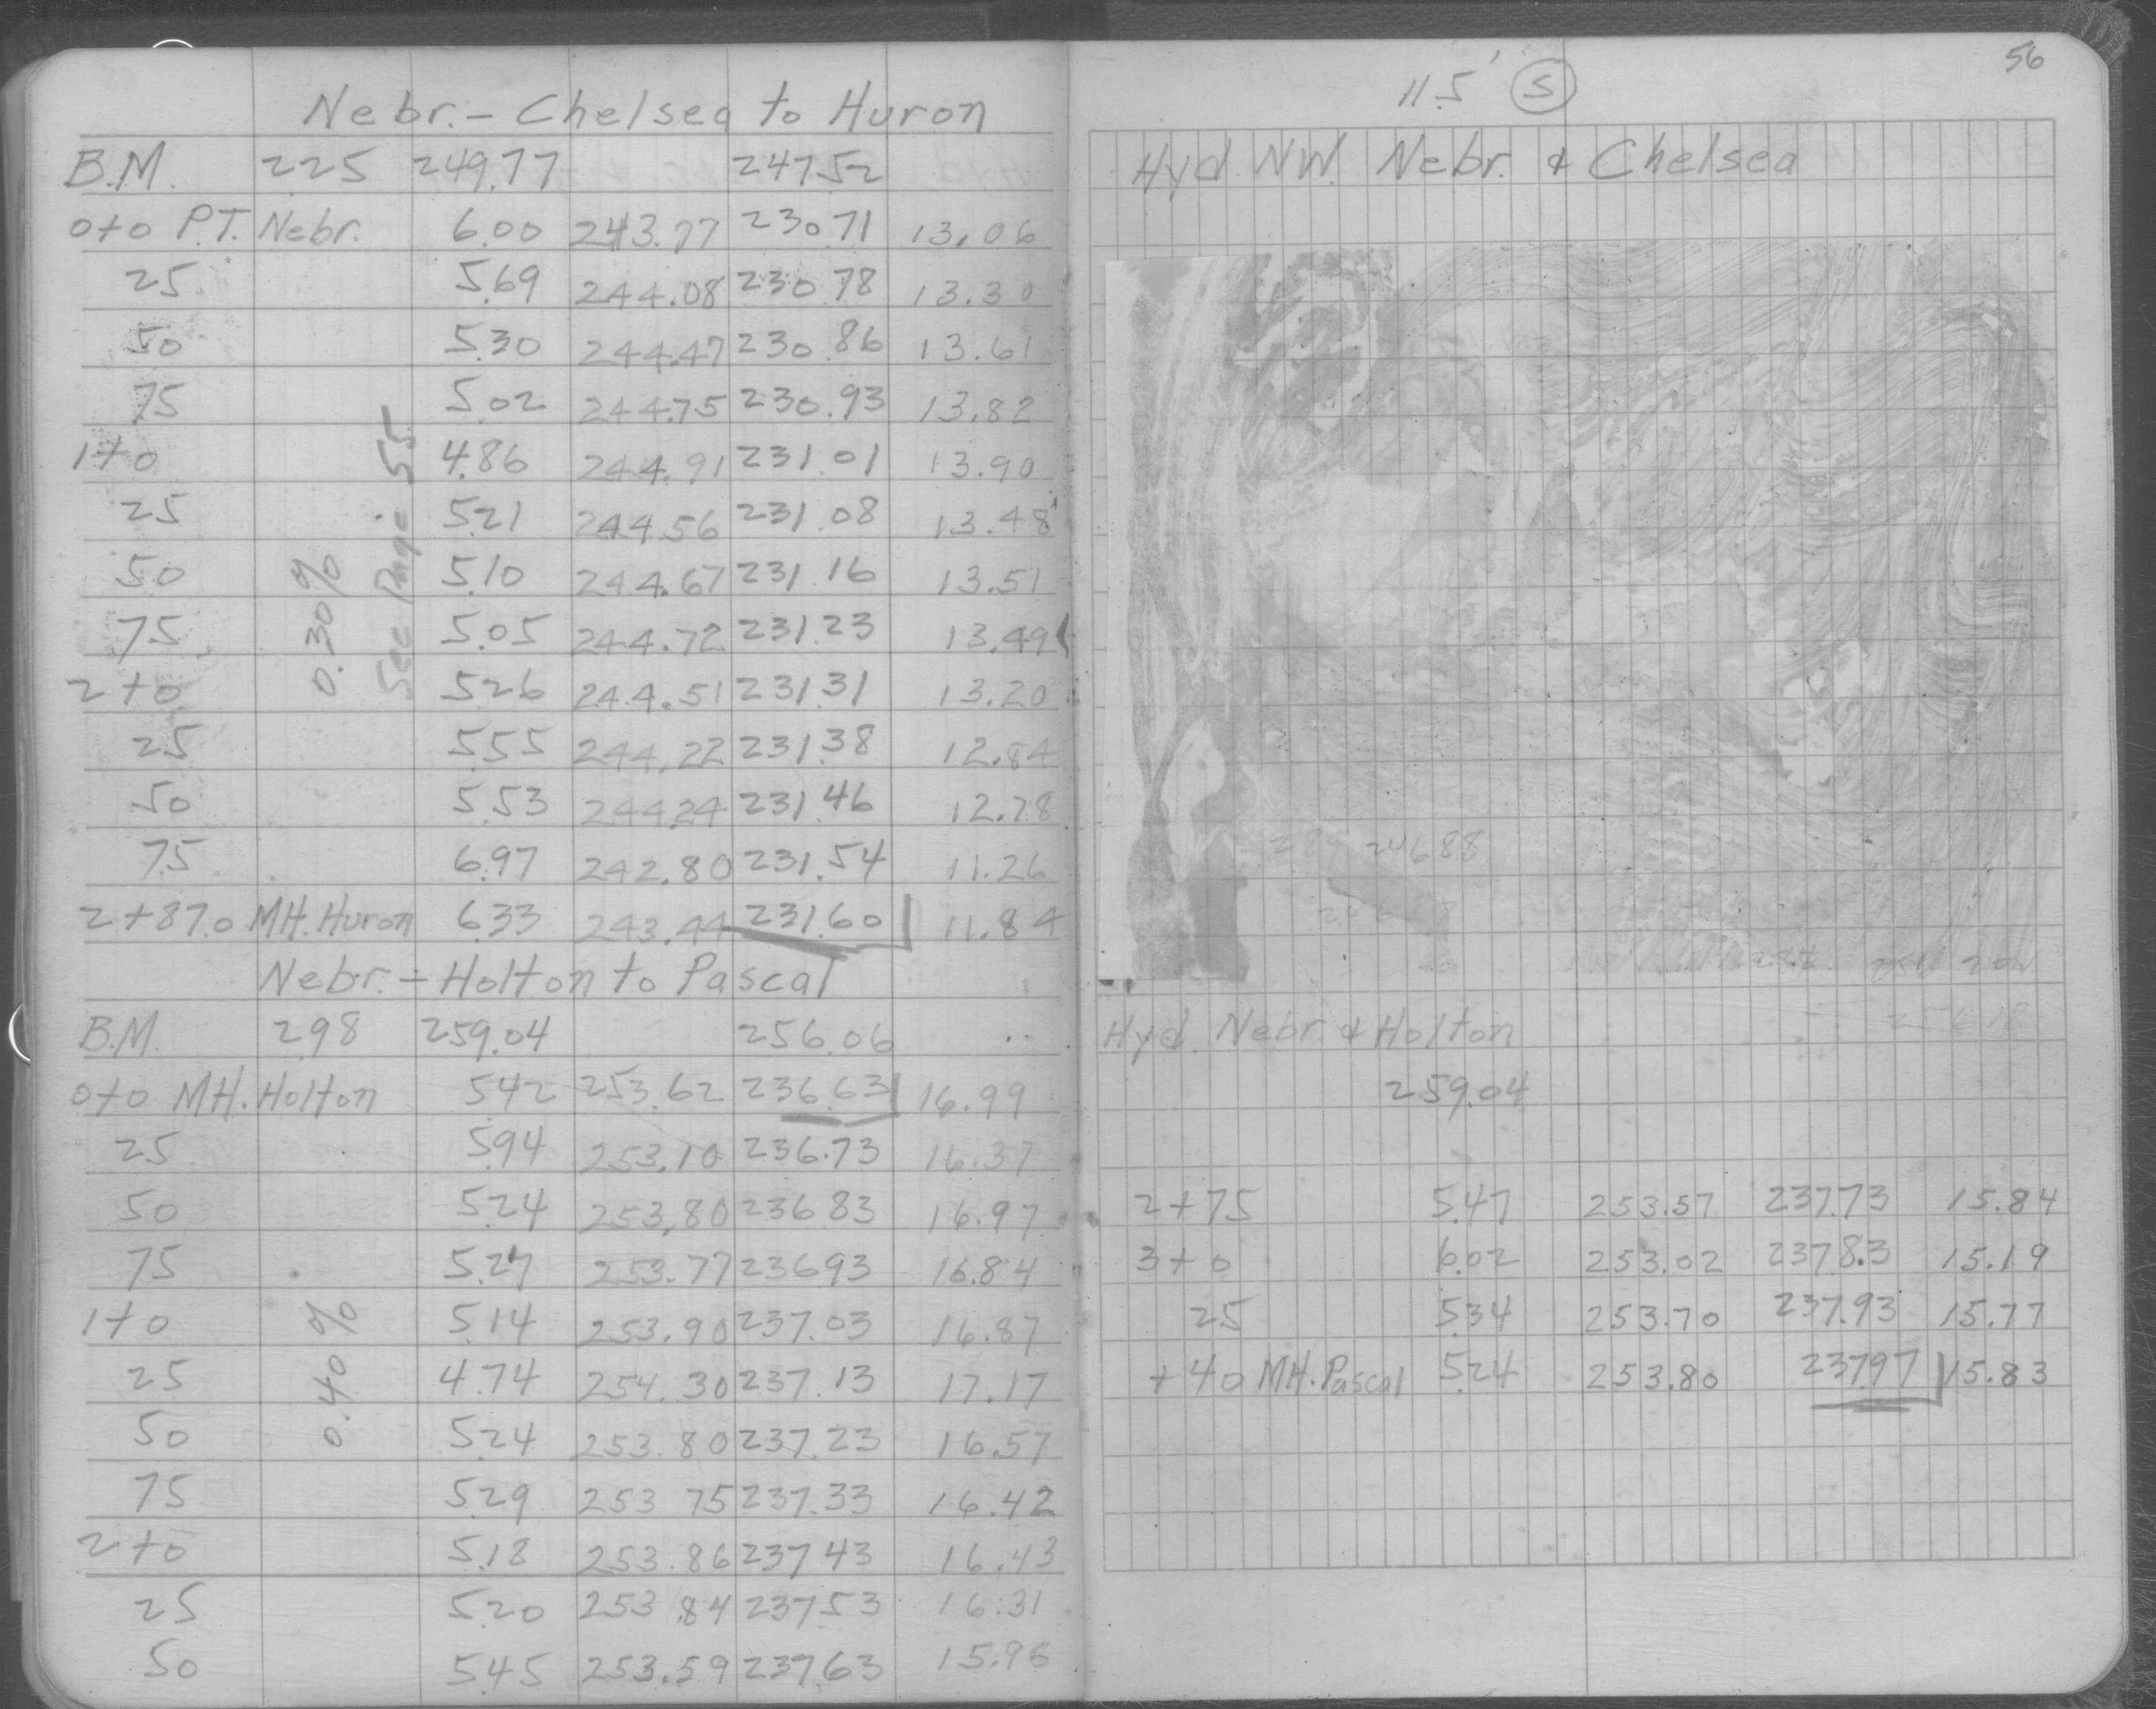 Nebr. - Chelsea to Huron
B.M. 225 249.77 247.52
0+0 P.T. Nebr. 6.00 243.77 230.71 13.06
25 5.69 244.08 230.78 13.30
50 5.30 244.47 230.86 13.61
75 5.02 244.75 230.93 13.82
1+0 4.86 244.91 231.01 13.90
25 5.21 244.56 231.08 13.48
50 5.10 244.67 231.16 13.51
75 5.05 244.72 231.23 13.49
2+0 5.26 244.51 231.31 13.20
25 5.55 244.22 231.38 12.84
50 5.53 244.24 231.46 12.78
75 6.97 242.80 231.54 11.26
2+87.0 MH. Huron 6.33 243.44 231.60 11.84
0.30%
See Page 55
Nebr. - Holton to Pascal
B.M. 298 259.04 256.06
0+0 MH. Holton 5.42 253.62 236.63 16.99
25 5.94 253.10 236.73 16.37
50 5.24 253.80 236.83 16.97
75 5.27 253.77 236.93 16.84
1+0 5.14 253.90 237.03 16.87
25 4.74 254.30 237.13 17.17
50 5.24 253.80 237.23 16.57
75 5.29 253.75 237.33 16.42
2+0 5.18 253.86 237.43 16.43
25 5.20 253.84 237.53 16.31
50 5.45 253.59 237.63 15.96
0.40%
56
11.5' S
Hyd. NW. Nebr. & Chelsea
246.88
Hyd. Nebr. & Holton
259.04
2+75 5.47 253.57 237.73 15.84
3+0 6.02 253.02 237.83 15.19
25 5.34 253.70 237.93 15.77
+40 MH. Pascal 5.24 253.80 237.97 15.83